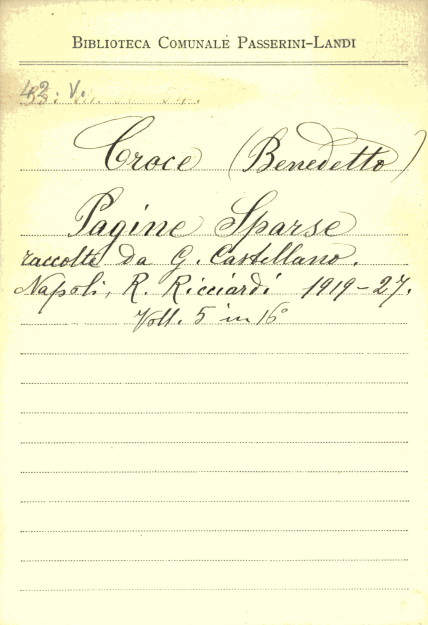 BIBLIOTECA COMUNALE PASSERINI-LANDI
Croce (Benedetto)
Pagine Sparse
raccolte da G. Castellano.
Napoli, R. Ricciardi 1919-27.
Voll. 5 in 16°